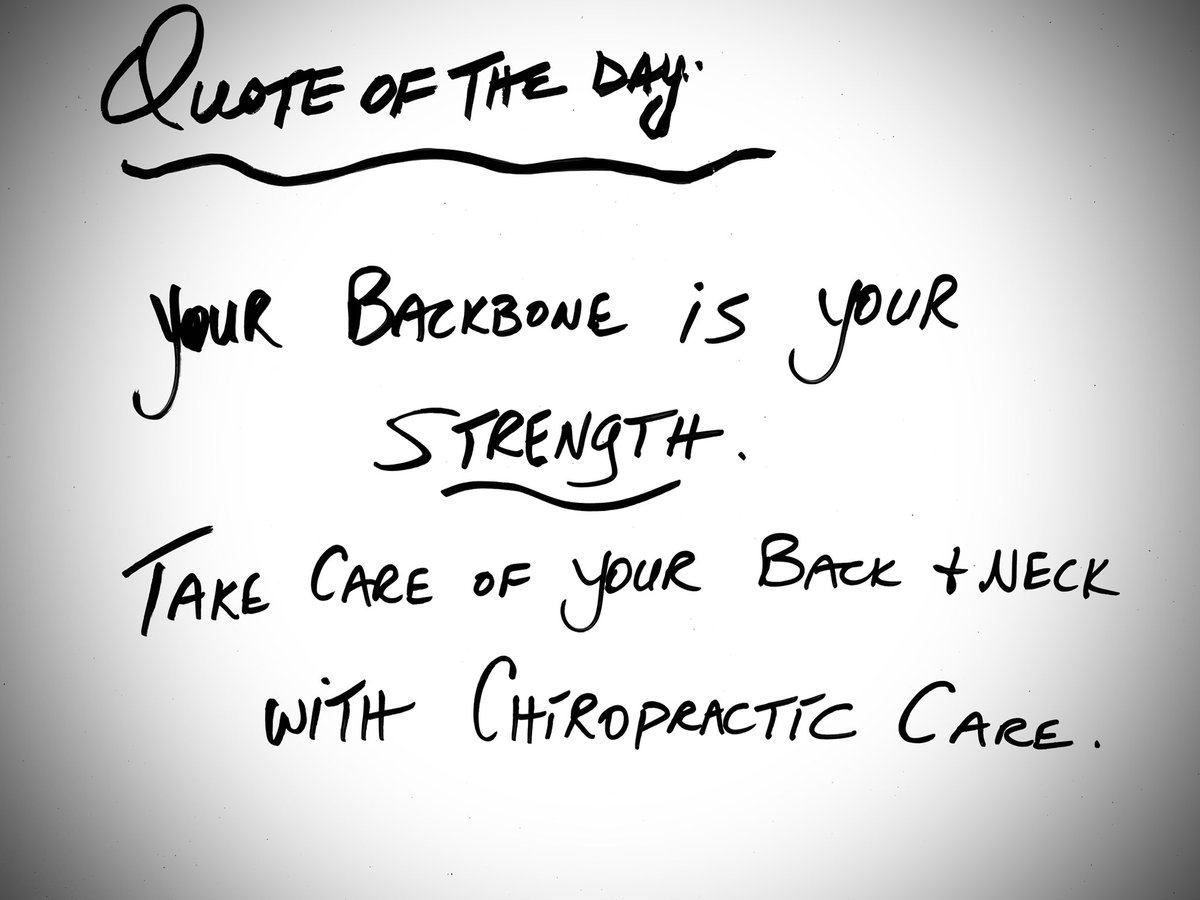 Quote of the Day:
Your Backbone is your
Strength.
Take Care of your Back + Neck
with Chiropractic Care.